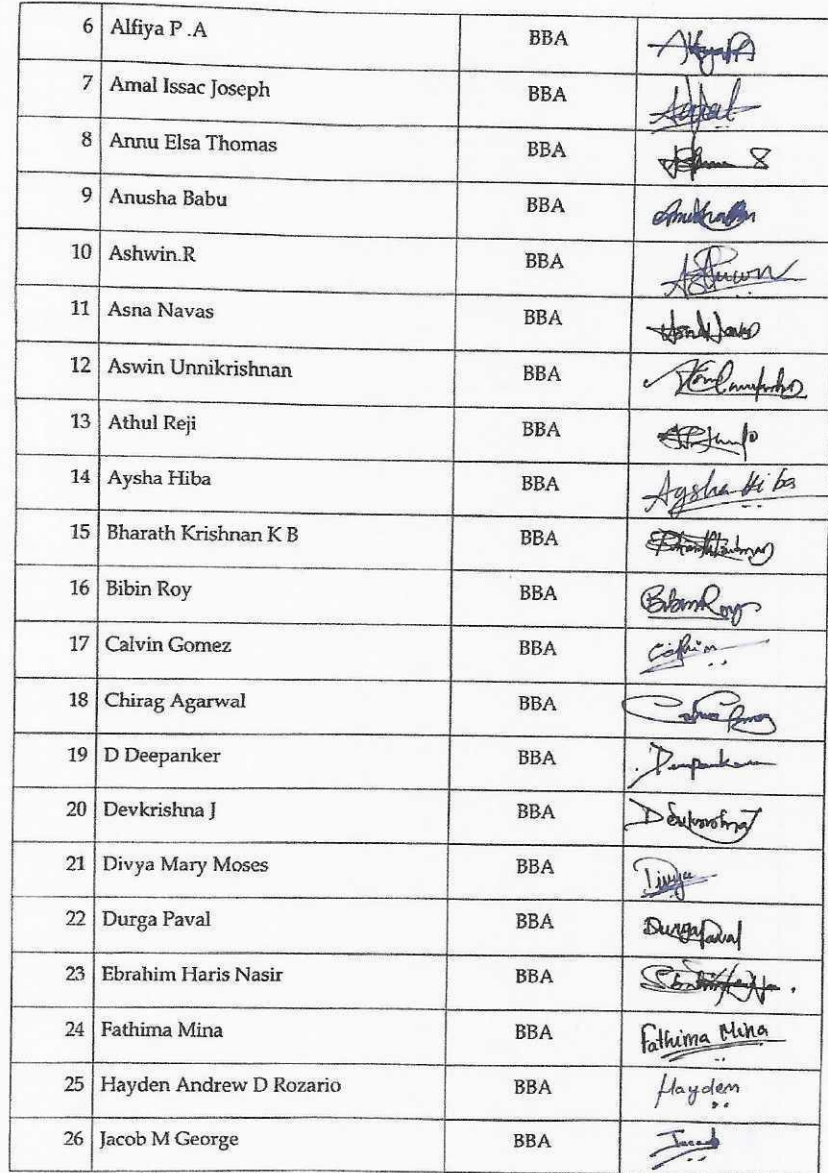 6 Alfiya P .A BBA
7 Amal Issac Joseph BBA
8 Annu Elsa Thomas BBA
9 Anusha Babu BBA
10 Ashwin.R BBA
11 Asna Navas BBA
12 Aswin Unnikrishnan BBA
13 Athul Reji BBA
14 Aysha Hiba BBA Aysha Hiba
15 Bharath Krishnan K B BBA
16 Bibin Roy BBA Bibin Roy
17 Calvin Gomez BBA
18 Chirag Agarwal BBA
19 D Deepanker BBA
20 Devkrishna J BBA
21 Divya Mary Moses BBA Divya
22 Durga Paval BBA Durga Paval
23 Ebrahim Haris Nasir BBA
24 Fathima Mina BBA Fathima Mina
25 Hayden Andrew D Rozario BBA Hayden
26 Jacob M George BBA Jacob